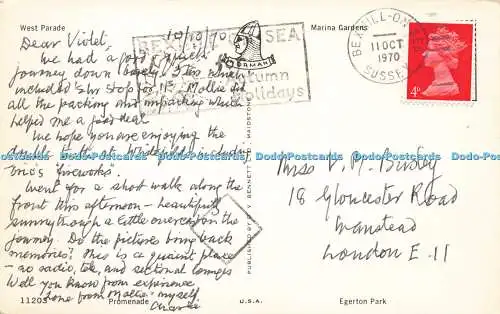 West Parade
Marina Gardens
10/10/70
BEXHILL-ON-SEA
11 OCT
1970
SUSSEX
4D
BEXHILL-ON-SEA
Autumn
Holidays
NORMAN
Dear Violet,
We had a good & quick
journey down
included ½ hr stop for
all the packing and unpacking which
helped me a good deal.
We hope you are enjoying the
double talk at includ
Eric's "fireworks".
Went for a short walk along the
front this afternoon – beautifully
sunny though a little overcast on the
journey. Do the pictures bring back
memories? This is a quiet place
– no radio, tele, and sectional lounges
Well you know from experience
Love from Mollie & myself
Miss V. M. Busby
18 Gloucester Road
Wanstead
London E. 11
PUBLISHED BY D. V. BENNETT LTD., MAIDSTONE
DodoPostcards DodoPostcards DodoPostcards DodoPostcards DodoPostcards DodoPostcards
11203
Promenade
U.S.A.
Egerton Park